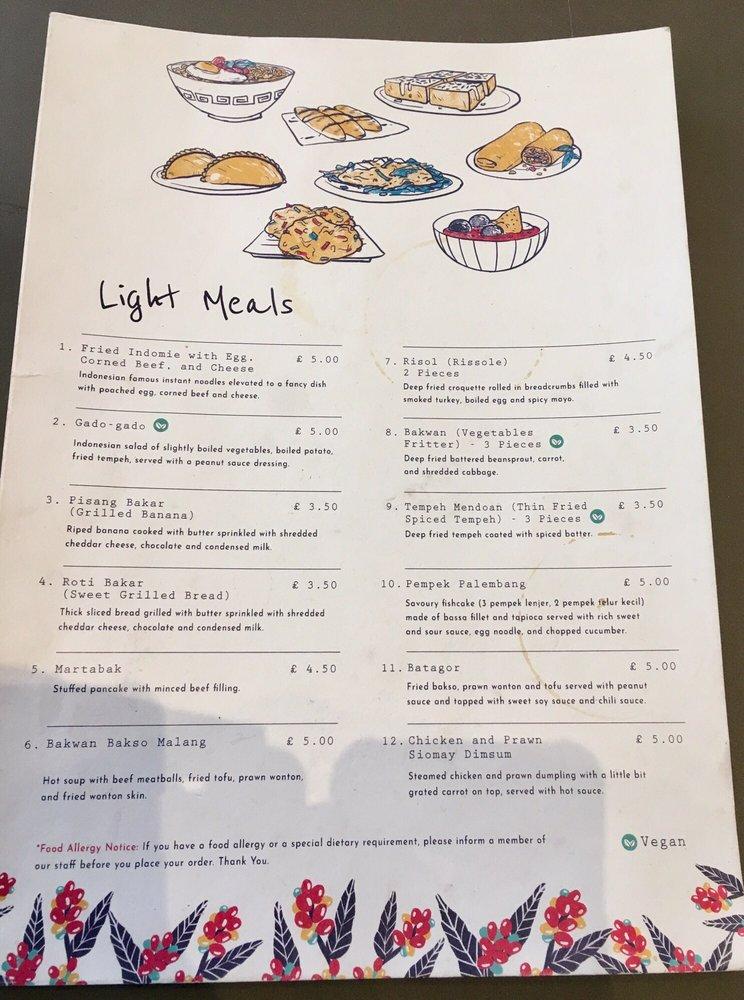 Light Meals
1. Fried Indomie with Egg, £ 5.00
Corned Beef, and Cheese
Indonesian famous instant noodles elevated to a fancy dish
with poached egg, corned beef and cheese.
2. Gado-gado £ 5.00
Indonesian salad of slightly boiled vegetables, boiled patato,
fried tempeh, served with a peanut sauce dressing.
3. Pisang Bakar £ 3.50
(Grilled Banana)
Riped banana cooked with butter sprinkled with shredded
cheddar cheese, chocolate and condensed milk.
4. Roti Bakar £ 3.50
(Sweet Grilled Bread)
Thick sliced bread grilled with butter sprinkled with shredded
cheddar cheese, chocolate and condensed milk.
5. Martabak £ 4.50
Stuffed pancake with minced beef filling.
6. Bakwan Bakso Malang £ 5.00
Hot soup with beef meatballs, fried tofu, prawn wonton,
and fried wonton skin.
7. Risol (Rissole) £ 4.50
2 Pieces
Deep fried croquette rolled in breadcrumbs filled with
smoked turkey, boiled egg and spicy mayo.
8. Bakwan (Vegetables £ 3.50
Fritter) - 3 Pieces
Deep fried battered beansprout, carrot,
and shredded cabbage.
9. Tempeh Mendoan (Thin Fried £ 3.50
Spiced Tempeh) - 3 Pieces
Deep fried tempeh coated with spiced batter.
10. Pempek Palembang £ 5.00
Savoury fishcake (3 pempek lenjer, 2 pempek telur kecil)
made of bassa fillet and tapioca served with rich sweet
and sour sauce, egg noodle, and chopped cucumber.
11. Batagor £ 5.00
Fried bakso, prawn wonton and tofu served with peanut
sauce and topped with sweet soy sauce and chili sauce.
12. Chicken and Prawn £ 5.00
Siomay Dimsum
Steamed chicken and prawn dumpling with a little bit
grated carrot on top, served with hot sauce.
*Food Allergy Notice: If you have a food allergy or a special dietary requirement, please inform a member of
our staff before you place your order. Thank You.
Vegan